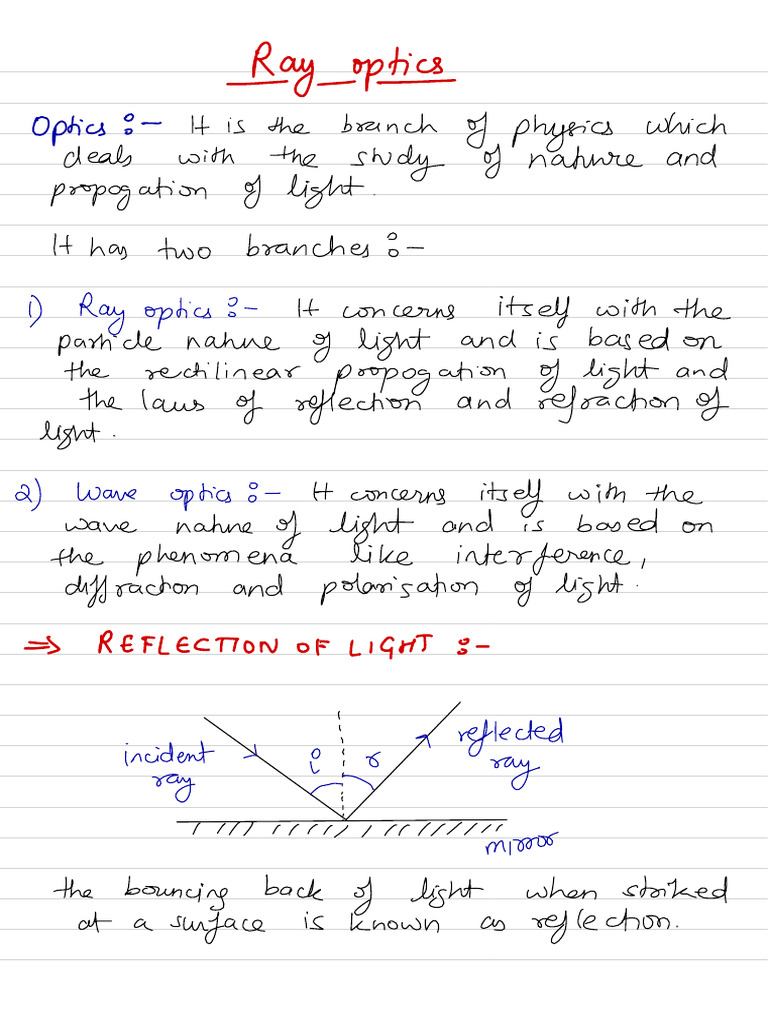 Ray optics
Optics :- It is the branch of physics which
deals with the study of nature and
propogation of light.
It has two branches :-
1) Ray optics :- It concerns itself with the
particle nature of light and is based on
the rectilinear propogation of light and
the laws of reflection and refraction of
light.
2) Wave optics :- It concerns itself with the
wave nature of light and is based on
the phenomena like interference,
diffraction and polarisation of light.
⇒ REFLECTION OF LIGHT :-
incident
ray
i
r
reflected
ray
mirror
the bouncing back of light when striked
at a surface is known as reflection.